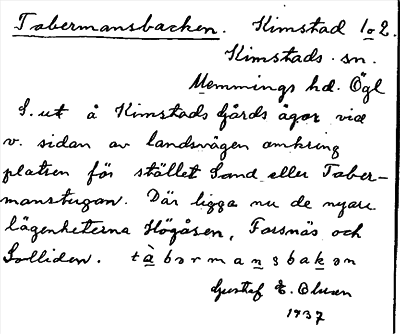 Tabermansbacken. Kimstad 1o2.
Kimstads sn.
Memmings hd. Ögl
S. ut å Kimstads gårds ägor vid
v. sidan av landsvägen omkring
platsen för stället Sand eller Taber-
manstugan. Där ligga nu de nyare
lägenheterna Högåsen, Forsnäs och
Solliden. tàbərmansbakən
Gustaf E. Olsson
1937